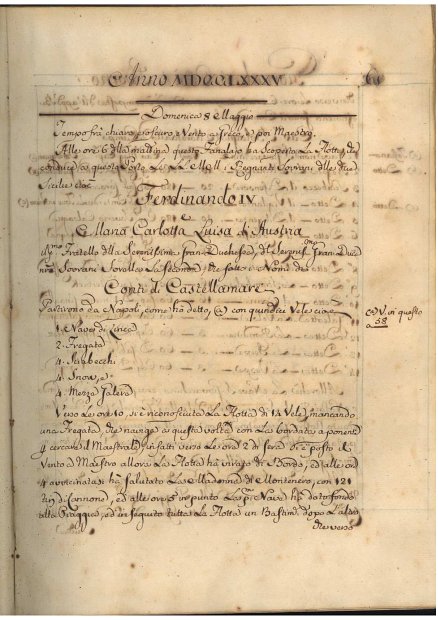 Anno MDCCLXXXV
Domenica 8 Maggio
Tempo frà chiaro, e oscuro, e Vento a Greco, e poi Maestro.
Alle ore 6 della mattina questo Fanalajo ha scoperto La Flotta, che
conduce a questo Porto Le LL. MM. i Regnanti Sovrani delle due
Sicilie cioè
Ferdinando IV
e
Maria Carlotta Luisa di Austria
Fratello della Serenissima Gran Duchessa, del Gran Duca
Sovrani sotto i Nomi di
Conti di Castellamare
Partirono da Napoli, come hò detto, (a) con quindici Vele cioè
1. Nave di Linea
2. Fregata
4. Sciabecchi
4. Snow, e
4. Mezza Galera
Verso Le ore 10, si è riconosciuta La Flotta di 14 Vele, mancando
una Fregata, che naviga a questa volta con La bordata a ponente
cercare il Maestrale, infatti verso Le ore 2 di sera si è posto il
Vento a Maestro allora La Flotta ha virato di Bordo, ed alle ore
4 avvicinatasi ha salutato La Madonna di Montenero, con 121
tiri di Cannone, ed alle ore 5 in punto La Nave ha dato fondo
alla Spiaggia, ed in seguito tutta La Flotta un Bastim. dopo L'altro
(a) V. in questo
a 58